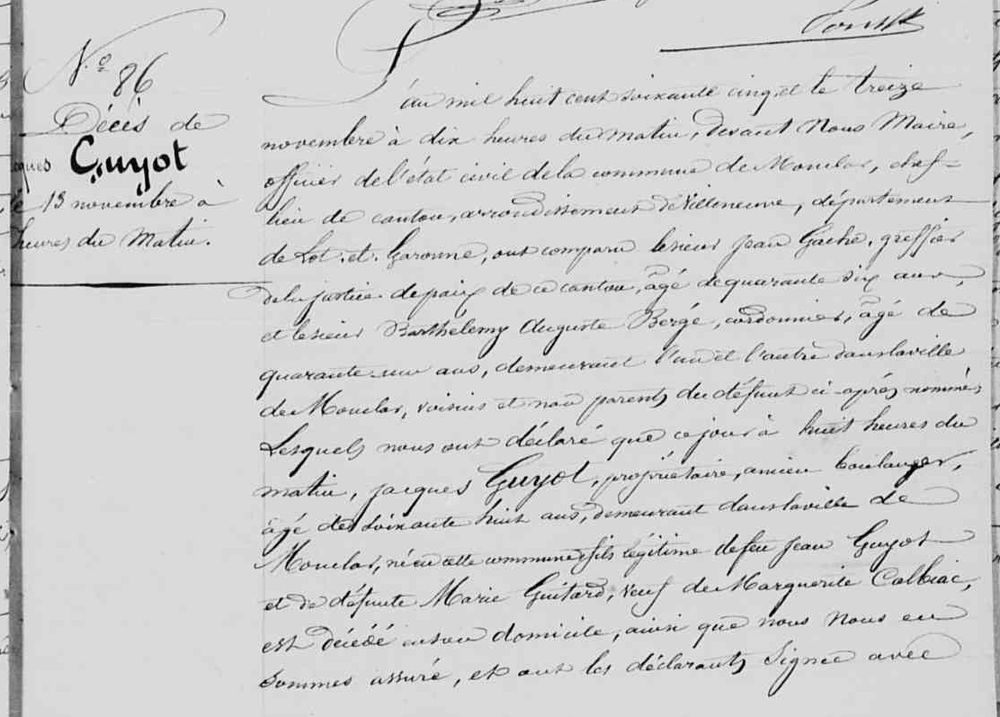 N.º 86
Décès de
Guyot
13 novembre à
heures du Matin.
L'an mil huit cent soixante cinq et le treize
novembre à dix heures du matin, devant Nous Maire,
officier de l'état civil de la commune de Monclar, chef-
lieu de canton, arrondissement de Villeneuve, département
de Lot-et-Garonne, ont comparu le sieur Jean Gache, greffier
de la justice de paix de ce canton, âgé de quarante six ans,
et le sieur Barthélemy Auguste Bergé, cordonnier, âgé de
quarante un ans, demeurant l'un et l'autre dans la ville
de Monclar, voisins et non parents du défunt ci-après nommé,
Lesquels nous ont déclaré que ce jour à huit heures du
matin, Jacques Guyot, propriétaire, ancien boulanger,
âgé de soixante huit ans, demeurant dans la ville de
Monclar, né en cette commune, fils légitime de feu Jean Guyot
et de défunte Marie Guitard, veuf de Marguerite Calbiac,
est décédé en son domicile, ainsi que nous Nous en
sommes assuré, et ont les déclarants signé avec